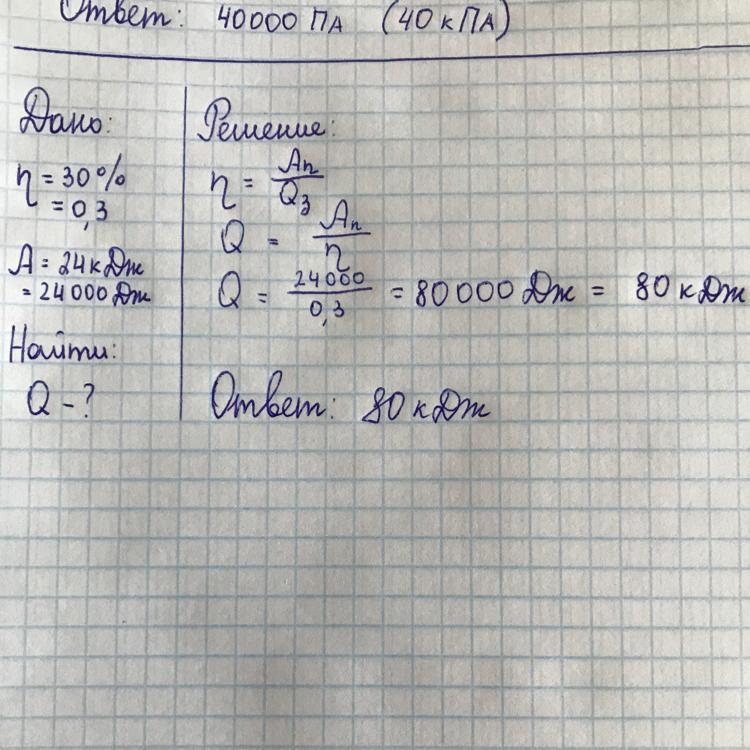 Ответ: 40000 ПА (40 кПА)
Дано:
η = 30%
= 0,3
A = 24 кДж
= 24 000 Дж
Найти:
Q - ?
Решение:
η = Aп / Qз
Q = Aп / η
Q = 24000 / 0,3 = 80 000 Дж = 80 кДж
Ответ: 80 кДж